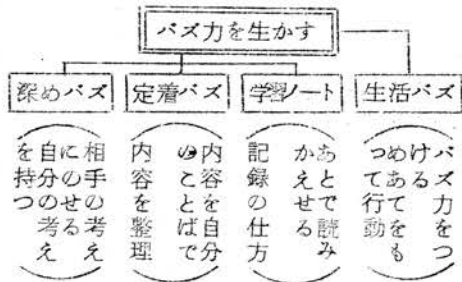 バズ力を生かす
深めバズ
定着バズ
学習ノート
生活バズ
相手の考え
にのせる
自分の考え
を持つ
内容を自分
のことばで
内容を整理
あとで読み
かえせる
記録の仕方
バズ力をつ
ける
めあてをも
って行動